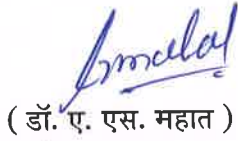 ( डॉ. ए. एस. महात )